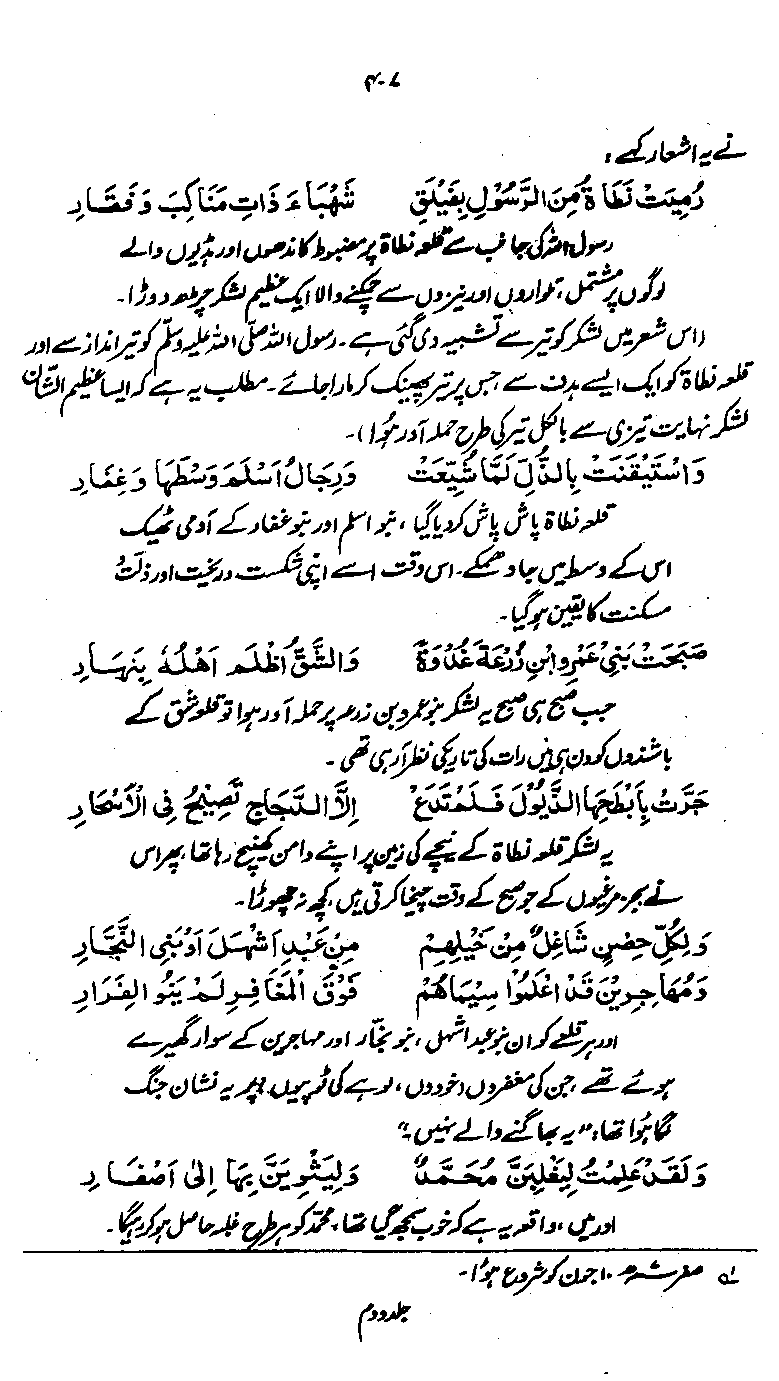 ۴۰۷
نے یہ اشعار کہے :
رُمِيَتْ نَطَاةُ مِنَ الرَّسُوْلِ بِفَيْلَقٍ شَهْبَاءَ ذَاتِ مَنَاكِبَ وَفَقَارِ
رسول اللہ کی جانب سے قلعہ نطاۃ پر مضبوط کاندھوں اور ہڈیوں والے
لوگوں پر مشتمل، تلواروں اور نیزوں سے چمکنے والا ایک عظیم لشکر چڑھ دوڑا۔
(اس شعر میں لشکر کو تیر سے تشبیہ دی گئی ہے۔ رسول اللہ صلی اللہ علیہ وسلم کو تیرانداز سے اور
قلعہ نطاۃ کو ایک ایسے ہدف سے، جس پر تیر پھینک کر مارا جائے۔ مطلب یہ ہے کہ ایسا عظیم الشان
لشکر نہایت تیزی سے بالکل تیر کی طرح حملہ آور ہُوا)۔
وَاسْتَيْقَنَتْ بِالذُّلِّ لَمَّا شُيِّعَتْ وَرِجَالُ اَسْلَمَ وَسْطَهَا وَغِفَارِ
قلعہ نطاۃ پاش پاش کر دیا گیا، بنو اسلم اور بنو غفار کے آدمی ٹھیک
اس کے وسط میں جا دھمکے۔ اس وقت اسے اپنی شکست و ریخت اور ذلت و
مسکنت کا یقین ہو گیا۔
صَبَحَتْ بَنِيْ عَمْرِو ابْنِ زُرْعَةَ غُدْوَةً وَالشِّقُّ اَظْلَمَ اَهْلُهٗ بِنَهَارِ
جب صبح ہی صبح یہ لشکر بنو عمرو بن زرعہ پر حملہ آور ہوا تو قلعہ شق کے
باشندوں کو دن ہی میں رات کی تاریکی نظر آ رہی تھی۔
جَرَّتْ بِاَبْطَحِهَا الذُّيُوْلَ فَلَمْ تَدَعْ اِلَّا الدَّجَاجَ تَصِيْحُ فِي الْاَسْحَارِ
یہ لشکر قلعہ نطاۃ کے نیچے کی زمین پر اپنے دامن کھینچ رہا تھا، پھر اس
نے بجز مرغیوں کے جو صبح کے وقت چیخا کرتی ہیں، کچھ نہ چھوڑا۔
وَلِكُلِّ حِصْنٍ شَاغِلٌ مِنْ خَيْلِهِمْ مِنْ عَبْدِ اَشْهَلَ اَوْ بَنِي النَّجَّارِ
وَمُهَاجِرِيْنَ قَدْ اَعْلَمُوْا سِيْمَاهُمْ فَوْقَ الْمَغَافِرِ لَمْ يَنُوا لِفَرَارِ
اور ہر قلعے کو ان بنو عبد اشہل، بنو نجار اور مہاجرین کے سوار گھیرے
ہوئے تھے، جن کی مغفروں (خودوں، لوہے کی ٹوپیوں) پر یہ نشان جنگ
لگا ہُوا تھا: "یہ بھاگنے والے نہیں۔"
وَلَقَدْ عَلِمْتُ لِيَغْلِبَنَّ مُحَمَّدٌ وَلِيَثْوِيَنَّ بِهَا اِلٰى اَصْفَارِ
اور میں، واقعہ یہ ہے کہ خوب سمجھ گیا تھا، محمدؐ کو ہر طرح غلبہ حاصل ہو کر رہیگا۔
لہ صفر ۱۰ جون کو شروع ہُوا۔
جلد دوم